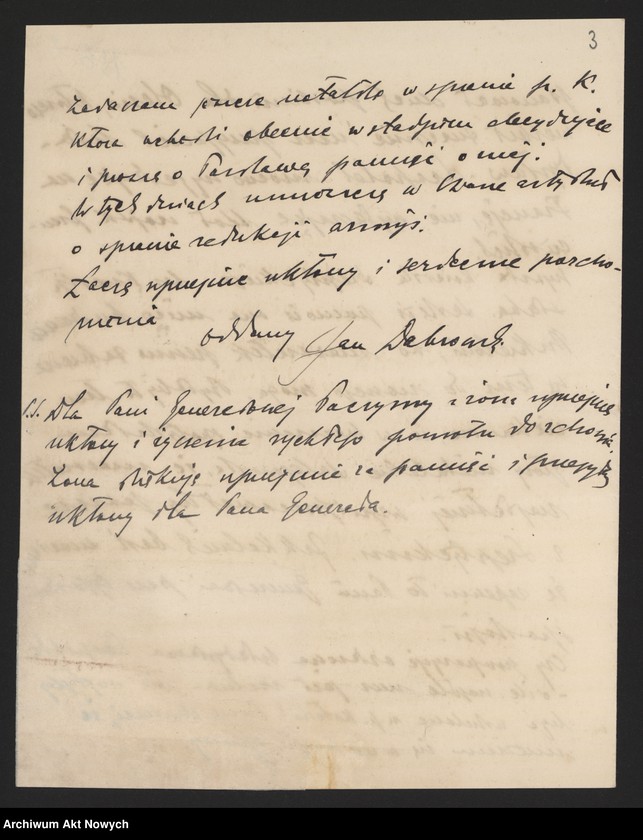 3
Zadaczam jeszcze notatkę w sprawie p. K.
która wchodzi obecnie w stadjum decydujące
i proszę o łaskawą pamięć o niej.
W tych dniach umieszczę w Czasie artykuł
o sprawie redukcji armji.
Łączę uprzejme ukłony i serdeczne pozdro-
wienia
oddany Jan Dąbrowski
P.S. Dla Pani Generałowej łączymy z żoną uprzejme
ukłony i życzenia rychłego powrotu do zdrowia.
Żona dziękuję uprzejmie za pamięć i przesyła
ukłony dla Pana Generała.
Archiwum Akt Nowych